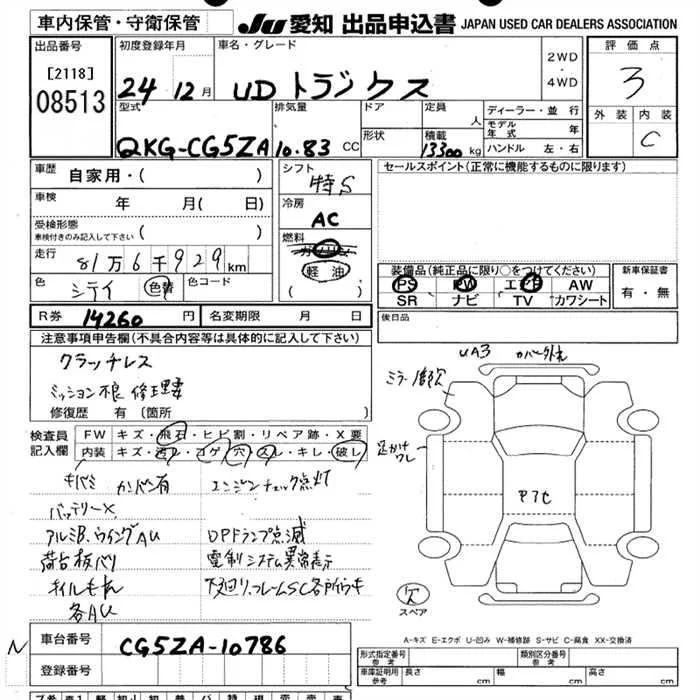 車内保管・守衛保管
JU 愛知 出品申込書 JAPAN USED CAR DEALERS ASSOCIATION
出品番号
[2118]
08513
初度登録年月
24 12月
車名・グレード
UDトラックス
2WD
・
4WD
評価点
3
外装 内装
C
型式
QKG-CG5ZA
排気量
10.83 CC
ドア
形状
定員
人
積載
13300 kg
ディーラー・並行
モデル年式 年
ハンドル 左・右
車歴
自家用・( )
車検
年 月( 日)
受検形態
車検付きのみ記入して下さい ( )
走行
81万6千929km
色
シテイ
色替
色コード
シフト
特S
冷房
AC
燃料
ガソリン
軽油
( )
セールスポイント(正常に機能するものに限ります)
装備品(純正品に限り○をつけてください)
PS PW エアB AW
SR ナビ TV カワシート
新車保証書
有・無
R券 14260 円
名変期限 月 日
後日品
注意事項申告欄(不具合内容等は具体的に記入して下さい)
クラッチレス
ミッション不良 修理要
修復歴 有 [箇所 ]
検査員
記入欄
FW キズ・飛石・ヒビ割・リペア跡・X要
内装 キズ・汚レ・コゲ・穴・スレ・キレ・破レ
キバミ カンバン有 エンジンチェック点灯
バッテリーX
アルミB.ウイングAU DPFランプ点滅
荷台板バリ 電制システム異常表示
オイルもれ 下廻り.フレームSC各所
各AU
UA3
カバー外れ
ミラー
足かけ
ワレ
欠
スペア
A-キズ E-エクボ U-凹み W-補修跡 S-サビ C-腐食 XX-交換済
N
車台番号 CG5ZA-10786
登録番号
形式指定番号
参考
類別区分番号
参考
車庫証明用
参考
長さ cm 幅 cm 高さ cm